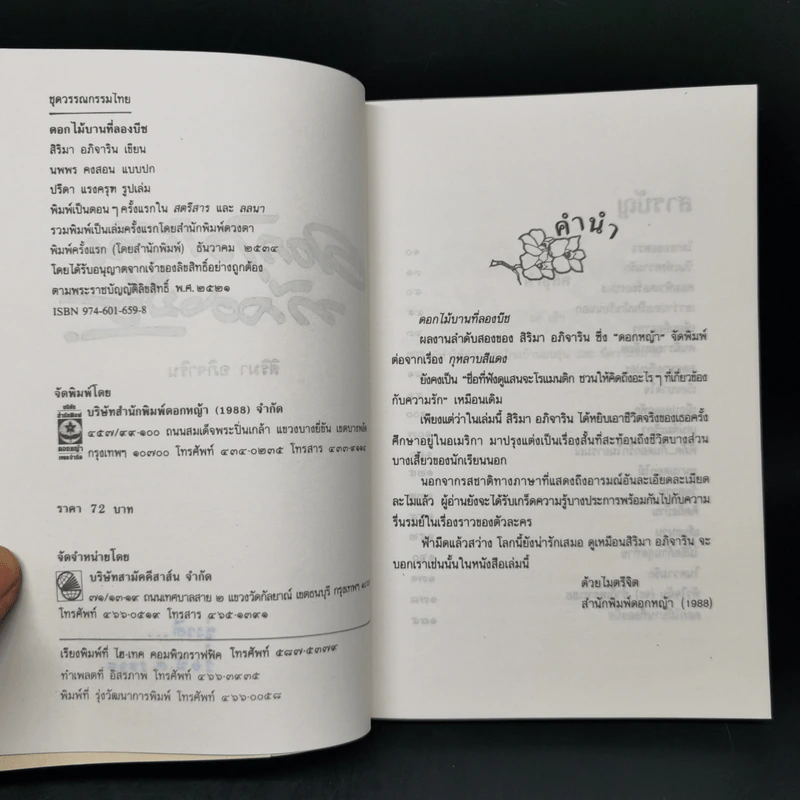 ชุดวรรณกรรมไทย
ดอกไม้บานที่ลองบีช
สิริมา อภิจาริน เขียน
นพพร คงสอน แบบปก
ปรีดา แรงครุฑ รูปเล่ม
พิมพ์เป็นตอนๆ ครั้งแรกใน สตรีสาร และ ลลนา
รวมพิมพ์เป็นเล่มครั้งแรกโดยสำนักพิมพ์ดวงตา
พิมพ์ครั้งแรก (โดยสำนักพิมพ์) ธันวาคม ๒๕๓๔
โดยได้รับอนุญาตจากเจ้าของลิขสิทธิ์อย่างถูกต้อง
ตามพระราชบัญญัติลิขสิทธิ์ พ.ศ.๒๕๒๑
ISBN 974-601-659-8
จัดพิมพ์โดย
บริษัทสำนักพิมพ์ดอกหญ้า (1988) จำกัด
๔๕๗/๙๙-๑๐๐ ถนนสมเด็จพระปิ่นเกล้า แขวงบางยี่ขัน เขตบางพลัด
กรุงเทพฯ ๑๐๗๐๐ โทรศัพท์ ๔๓๔-๐๒๓๕ โทรสาร
ราคา 72 บาท
จัดจำหน่ายโดย
บริษัทสามัคคีสาส์น จำกัด
๗๑/๑๓-๑๙ ถนนเทศบาลสาย ๒ แขวงวัดกัลยาณ์ เขตธนบุรี กรุงเทพฯ
โทรศัพท์ ๔๖๖-๐๕๑๙ โทรสาร ๔๖๕-๑๓๙๑
เรียงพิมพ์ที่ ไฮ-เทค คอมพิวกราฟฟิค โทรศัพท์ ๕๘๗-๕๓๗๙
ทำเพลตที่ อิสรภาพ โทรศัพท์ ๔๖๖-๓๙๓๕
พิมพ์ที่ รุ่งวัฒนาการพิมพ์ โทรศัพท์ ๔๖๖-๐๐๕๘
คำนำ
ดอกไม้บานที่ลองบีช
ผลงานลำดับสองของ สิริมา อภิจาริน ซึ่ง "ดอกหญ้า" จัดพิมพ์
ต่อจากเรื่อง กุหลาบสีแดง
ยังคงเป็น "ชื่อที่ฟังดูแสนจะโรแมนติก ชวนให้คิดถึงอะไรๆ ที่เกี่ยวข้อง
กับความรัก" เหมือนเดิม
เพียงแต่ว่าในเล่มนี้ สิริมา อภิจาริน ได้หยิบเอาชีวิตจริงของเธอครั้ง
ศึกษาอยู่ในอเมริกา มาปรุงแต่งเป็นเรื่องสั้นที่สะท้อนถึงชีวิตบางส่วน
บางเสี้ยวของนักเรียนนอก
นอกจากรสชาติทางภาษาที่แสดงถึงอารมณ์อันละเอียดละเมียด
ละไมแล้ว ผู้อ่านยังจะได้รับเกร็ดความรู้บางประการพร้อมกันไปกับความ
รื่นรมย์ในเรื่องราวของตัวละคร
ฟ้ามืดแล้วสว่าง โลกนี้ยังน่ารักเสมอ ดูเหมือนสิริมา อภิจาริน จะ
บอกเราเช่นนั้นในหนังสือเล่มนี้
ด้วยไมตรีจิต
สำนักพิมพ์ดอกหญ้า (1988)